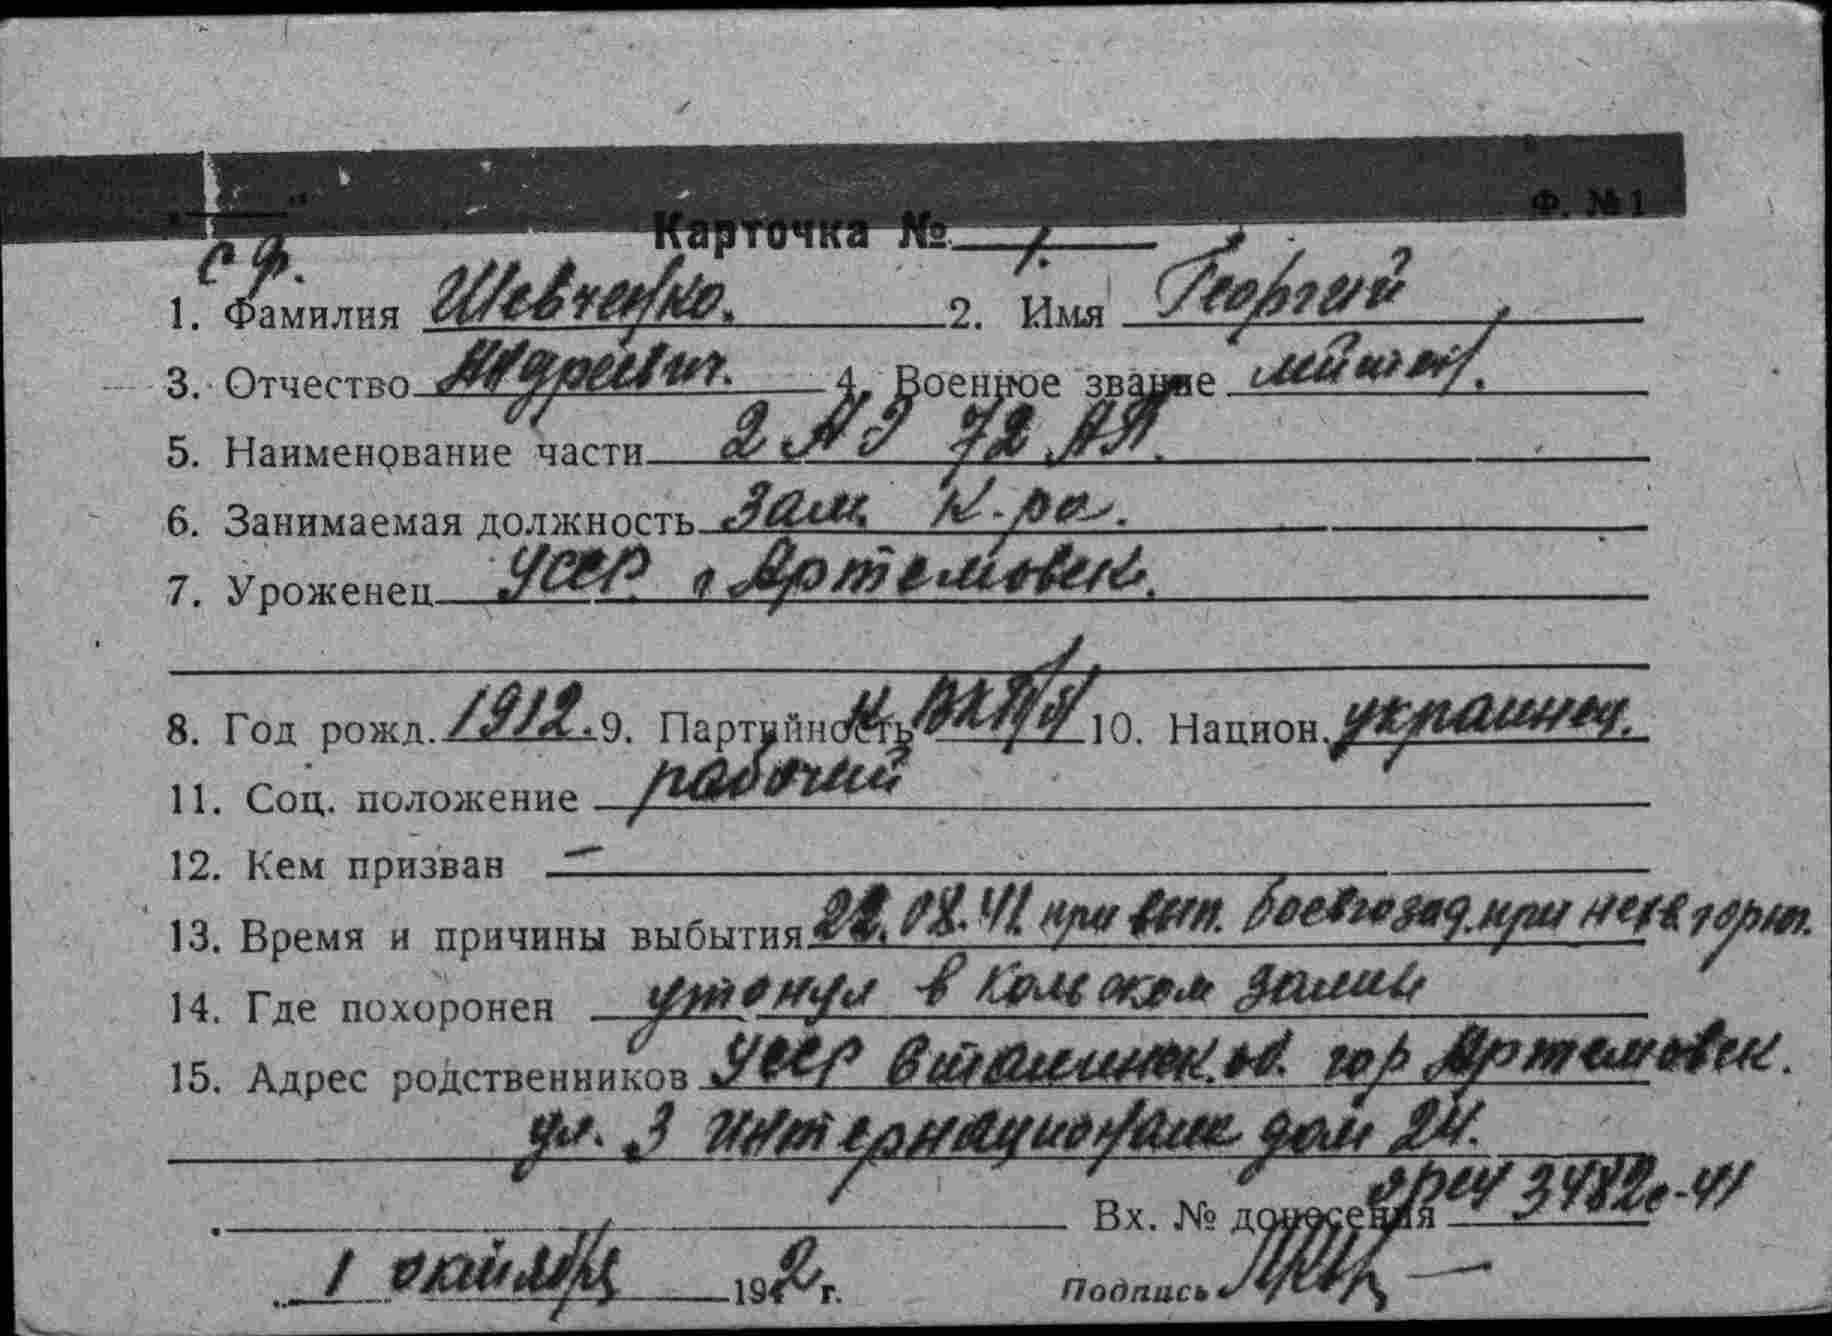 Ф. №1
Карточка № 1.
сф.
1. Фамилия Шевченко. 2. Имя Георгий
3. Отчество Андреевич. 4. Военное звание лейтен.
5. Наименование части 2 АЭ 72 АП.
6. Занимаемая должность Зам. К-ра.
7. Уроженец УССР г Артемовск.
8. Год рожд. 1912. 9. Партийность К ВКП/б/ 10. Национ. украинец.
11. Соц. положение рабочий
12. Кем призван —
13. Время и причины выбытия 22.08.41. при вып. боевго зад. при
14. Где похоронен утонул в Кольском заливе
15. Адрес родственников УССР Сталинск. об. гор Артемовск.
ул. 3 Интернационала дом 24.
Вх. № донесения 3482с-41
1 октября 1942 г. Подпись